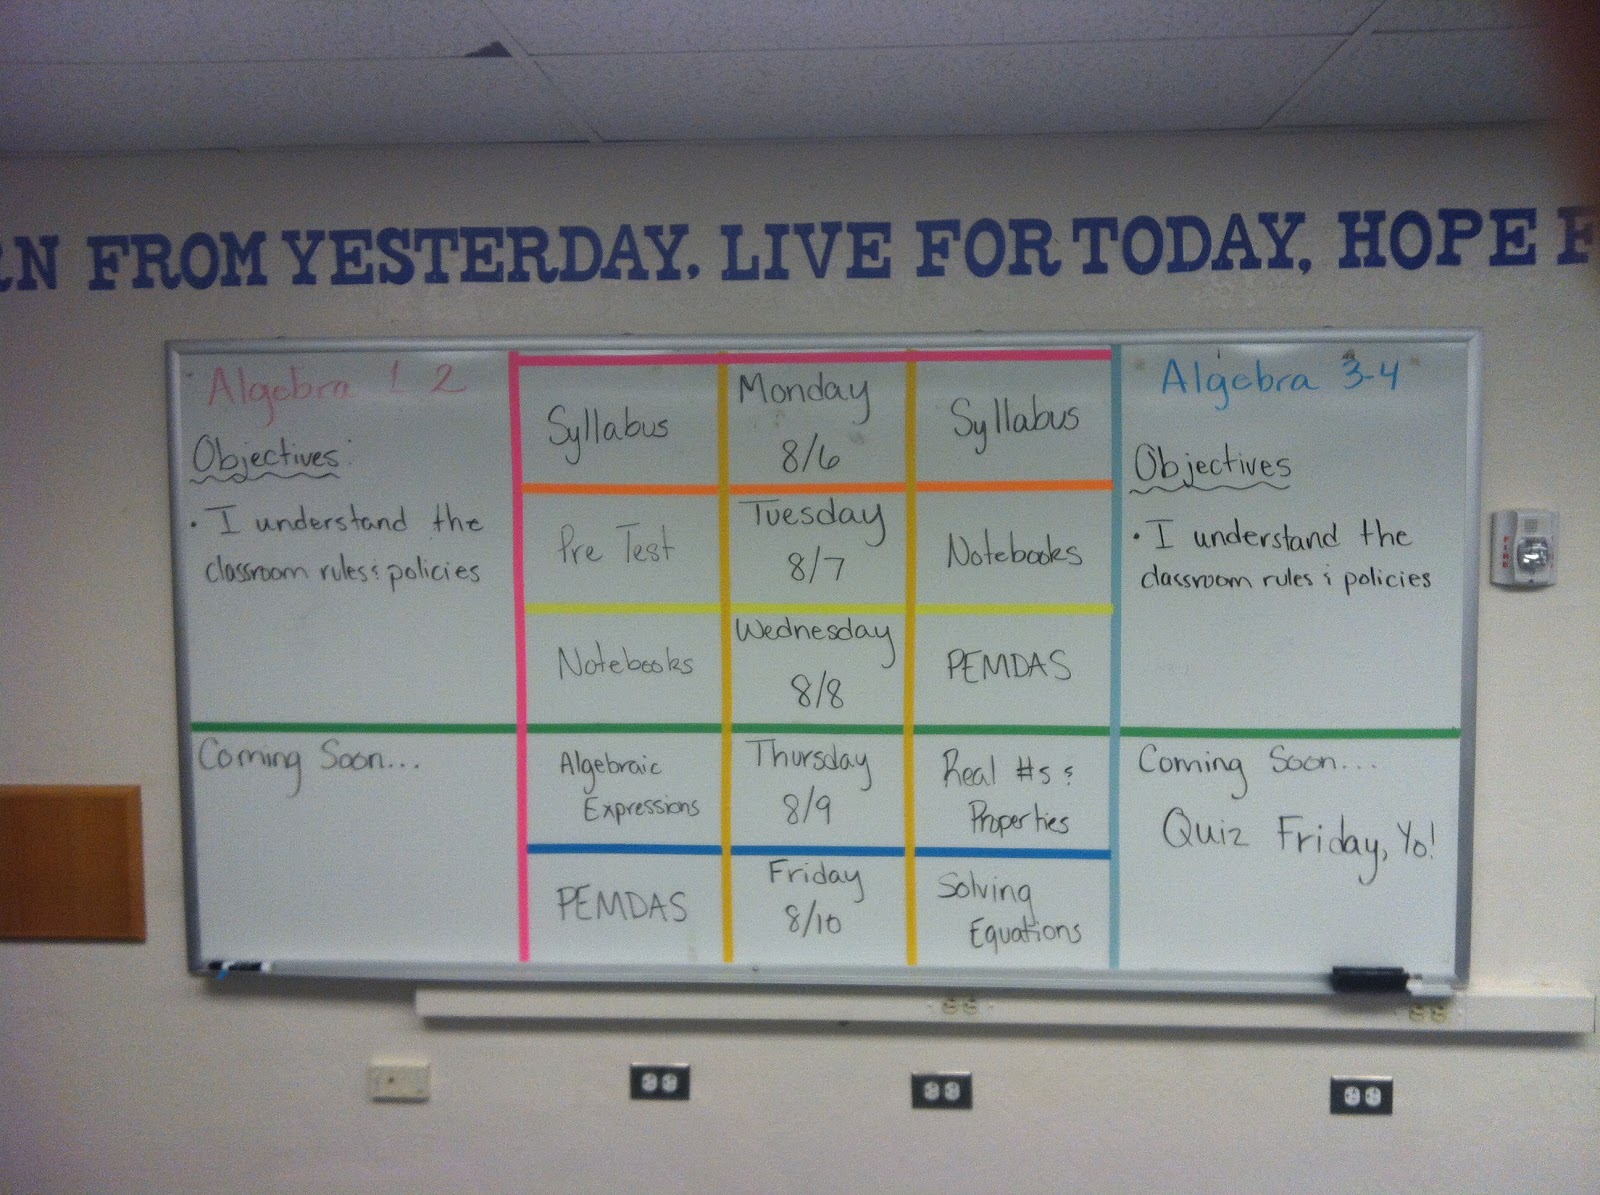 RN FROM YESTERDAY. LIVE FOR TODAY, HOPE F
Algebra 1 2
Objectives:
• I understand the
classroom rules & policies
Coming Soon...
Syllabus
Monday
8/6
Syllabus
Pre Test
Tuesday
8/7
Notebooks
Notebooks
Wednesday
8/8
PEMDAS
Algebraic
Expressions
Thursday
8/9
Real #s &
Properties
PEMDAS
Friday
8/10
Solving
Equations
Algebra 3-4
Objectives
• I understand the
classroom rules & policies
Coming Soon...
Quiz Friday, Yo!
FIRE